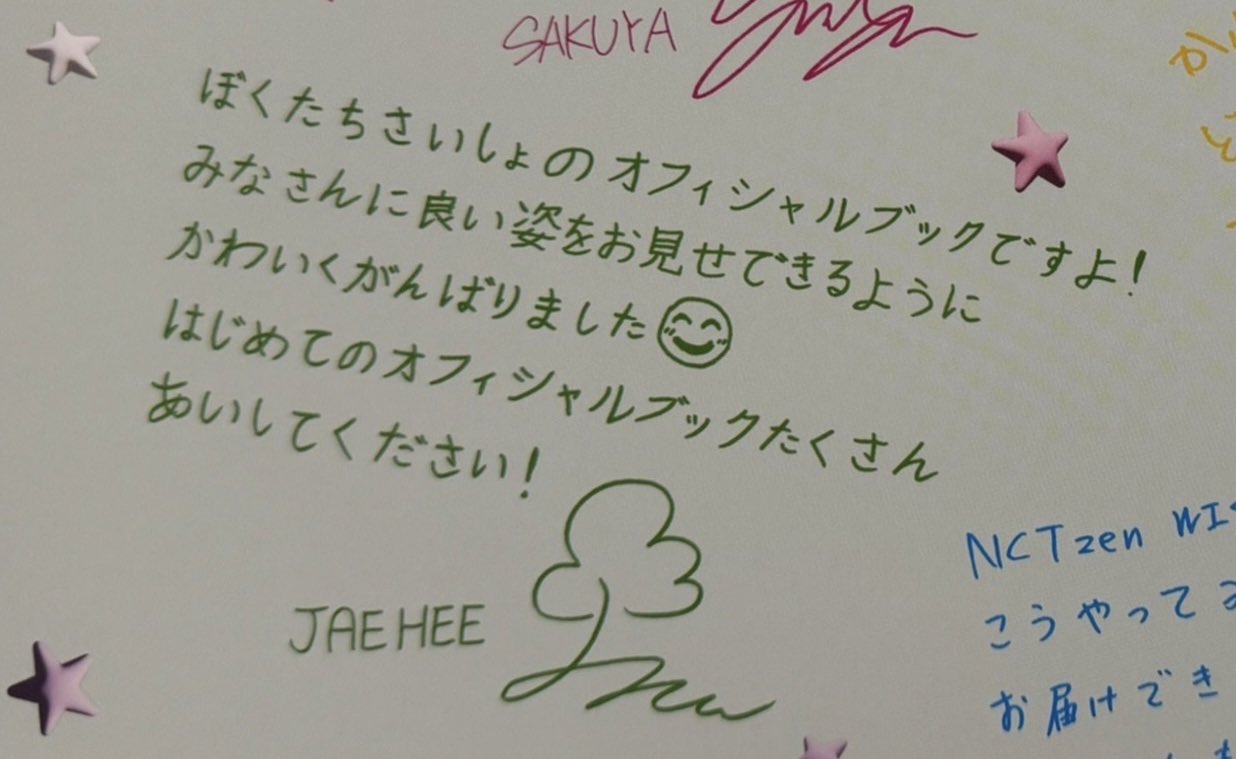 SAKUYA
ぼくたちさいしょのオフィシャルブックですよ!
みなさんに良い姿をお見せできるように
かわいくがんばりました😊
はじめてのオフィシャルブックたくさん
あいしてください!
JAEHEE
NCTzen WI
こうやって
お届けでき